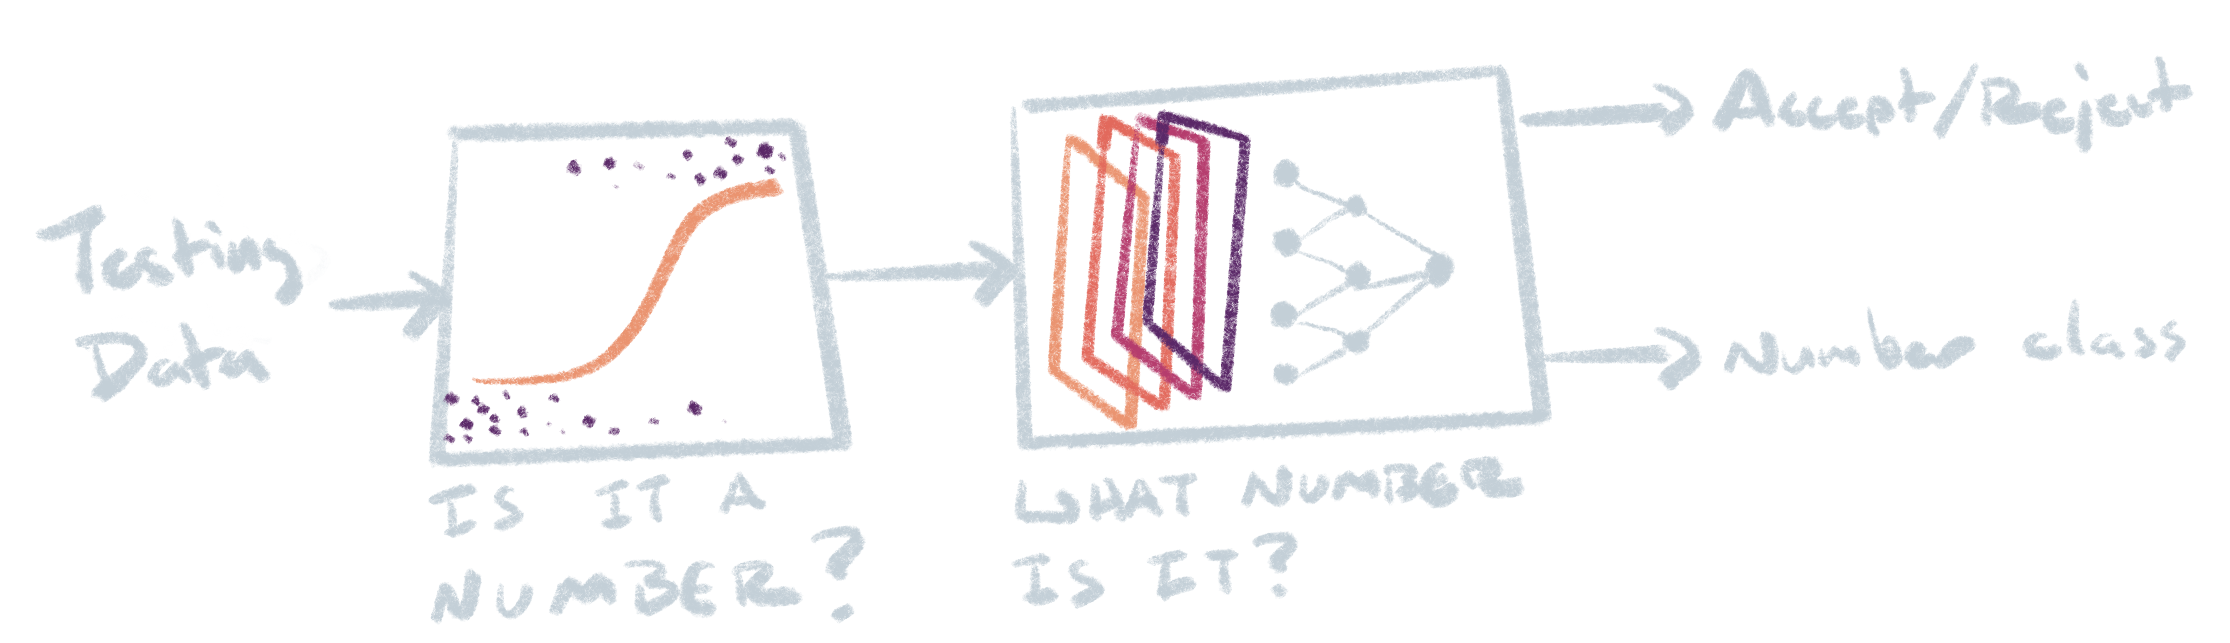 Testing
Data
IS IT A
NUMBER?
WHAT NUMBER
IS IT?
Accept/Reject
Number class